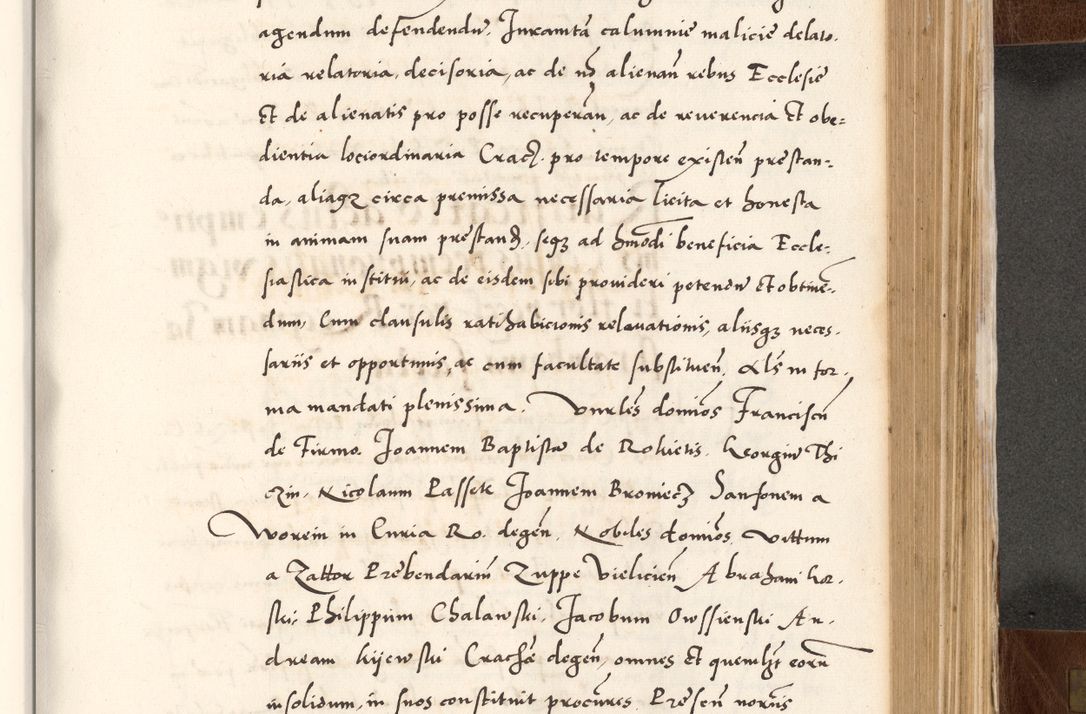 agendum defendendũ. Juramtã calumnie malicie delato.
ria relatoria, decisoria, ac de nõ alienan̄ rebus Ecclesie
et de alienatis pro posse recuperan̄, ac de reverencia et obe=
dientia lociordinaria Crac̄. pro tempore existen̄ prestan=
da, aliaqȝ circa premissa necessaria licita et honesta
in animam suam prestand̄. seqȝ ad hm̄odi beneficia Eccle=
siastica institui, ac de eisdem sibi provideri petendũ et obtinẽ=
dum, Cum clausulis ratihabicionis relevationis, aliisqȝ neces.
sariis et opportunis, ac cum facultate substituen̄. als̄ in for.
ma mandati plenissima. Vnrles̄ domĩos Franciscũ
de Firmo. Joannem Baptistã de Rohietis. Georgiũ Thi
czin. Nicolaum Passek Joannem Broniecȝ Sanfonem a
Worein in Curia Ro. degen̄. Nobiles domĩos. Vittum
a Zattor Prebendariũ Zuppe Vielicien̄ Abrahami Gor.
ski. Philippum Chalawski. Jacobum Owssienski An.
dream Kijewski Crach̄e degen̄, omnes et quemlȝt eorũ
insolidum, in suos constituit procũres. Presen̄ norĩis